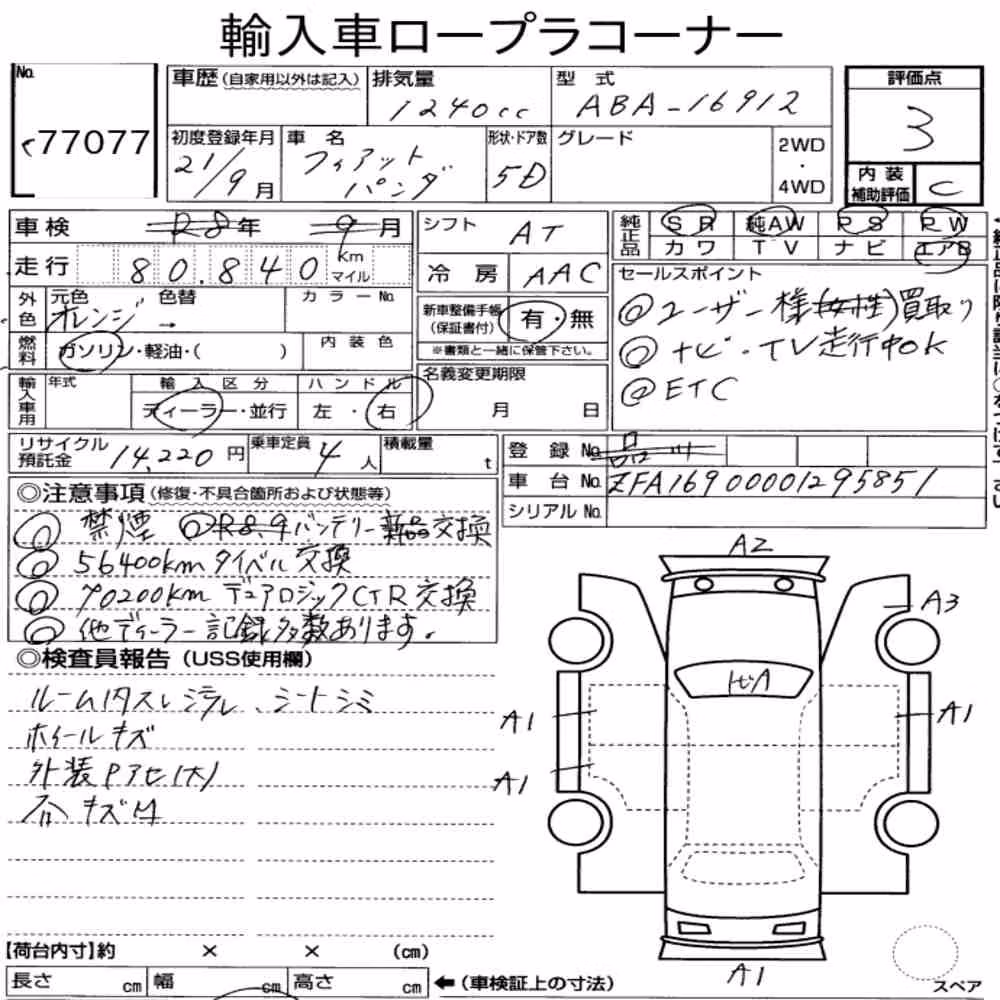 輸入車ロープラコーナー
No.
77077
車歴(自家用以外は記入)
排気量
1240cc
型式
ABA-16912
評価点
3
初度登録年月
21/9月
車名
フィアット
パンダ
形状・ドア数
5D
グレード
2WD
・
4WD
内装
補助評価
C
車検
R8年 9月
シフト
AT
純正品
SR 純AW PS PW
カワ TV ナビ エアB
走行
80.840
Km
マイル
冷房
AAC
セールスポイント
◎ユーザー様(女性)買取り
◎ナビ・TV走行中OK
◎ETC
外色
元色
色替
カラーNo.
オレンジ →
新車整備手帳
(保証書付)
有・無
※書類と一緒に保管下さい。
燃料
ガソリン・軽油・( )
内装色
輸入車用
年式
輸入区分
ハンドル
ディーラー・並行
左・右
名義変更期限
月 日
リサイクル
預託金
14,220円
乗車定員
4人
積載量
t
登録No.
品川
車台No.
ZFA16900001295851
シリアルNo.
◎注意事項(修復・不具合箇所および状態等)
◎禁煙 ◎R8.9バッテリー新品交換
◎56400kmタイベル交換
◎70200kmデュアロジックCTR交換
◎他ディーラー記録多数あります。
◎検査員報告(USS使用欄)
ルーム内スレ シミ シートシミ
ホイールキズ
外装Pアセ(大)
キズ
A2
A3
A1
A1
A1
A1
【荷台内寸】約 × × (cm)
長さ cm 幅 cm 高さ cm
←(車検証上の寸法)
スペア